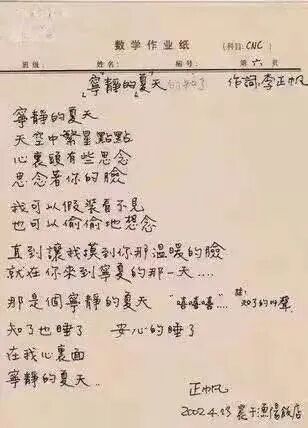 数学作业纸 (科目: CNC)
班级: 姓名: 编号: 第 六 页
"寧靜的夏天的知了" 作詞:李正帆
寧靜的夏天
天空中繁星點點
心裏頭有些思念
思念著你的臉
我可以假裝看不見
也可以偷偷地想念
直到讓我摸到你那溫暖的臉
就在你來到寧夏的那一天....
那是個寧靜的夏天 "嘻嘻嘻"... 註:知了的叫聲
知了也睡了 安心的睡了
在我心裏面
寧靜的夏天..
正帆
2002.4.15 寫于漁陽飯店